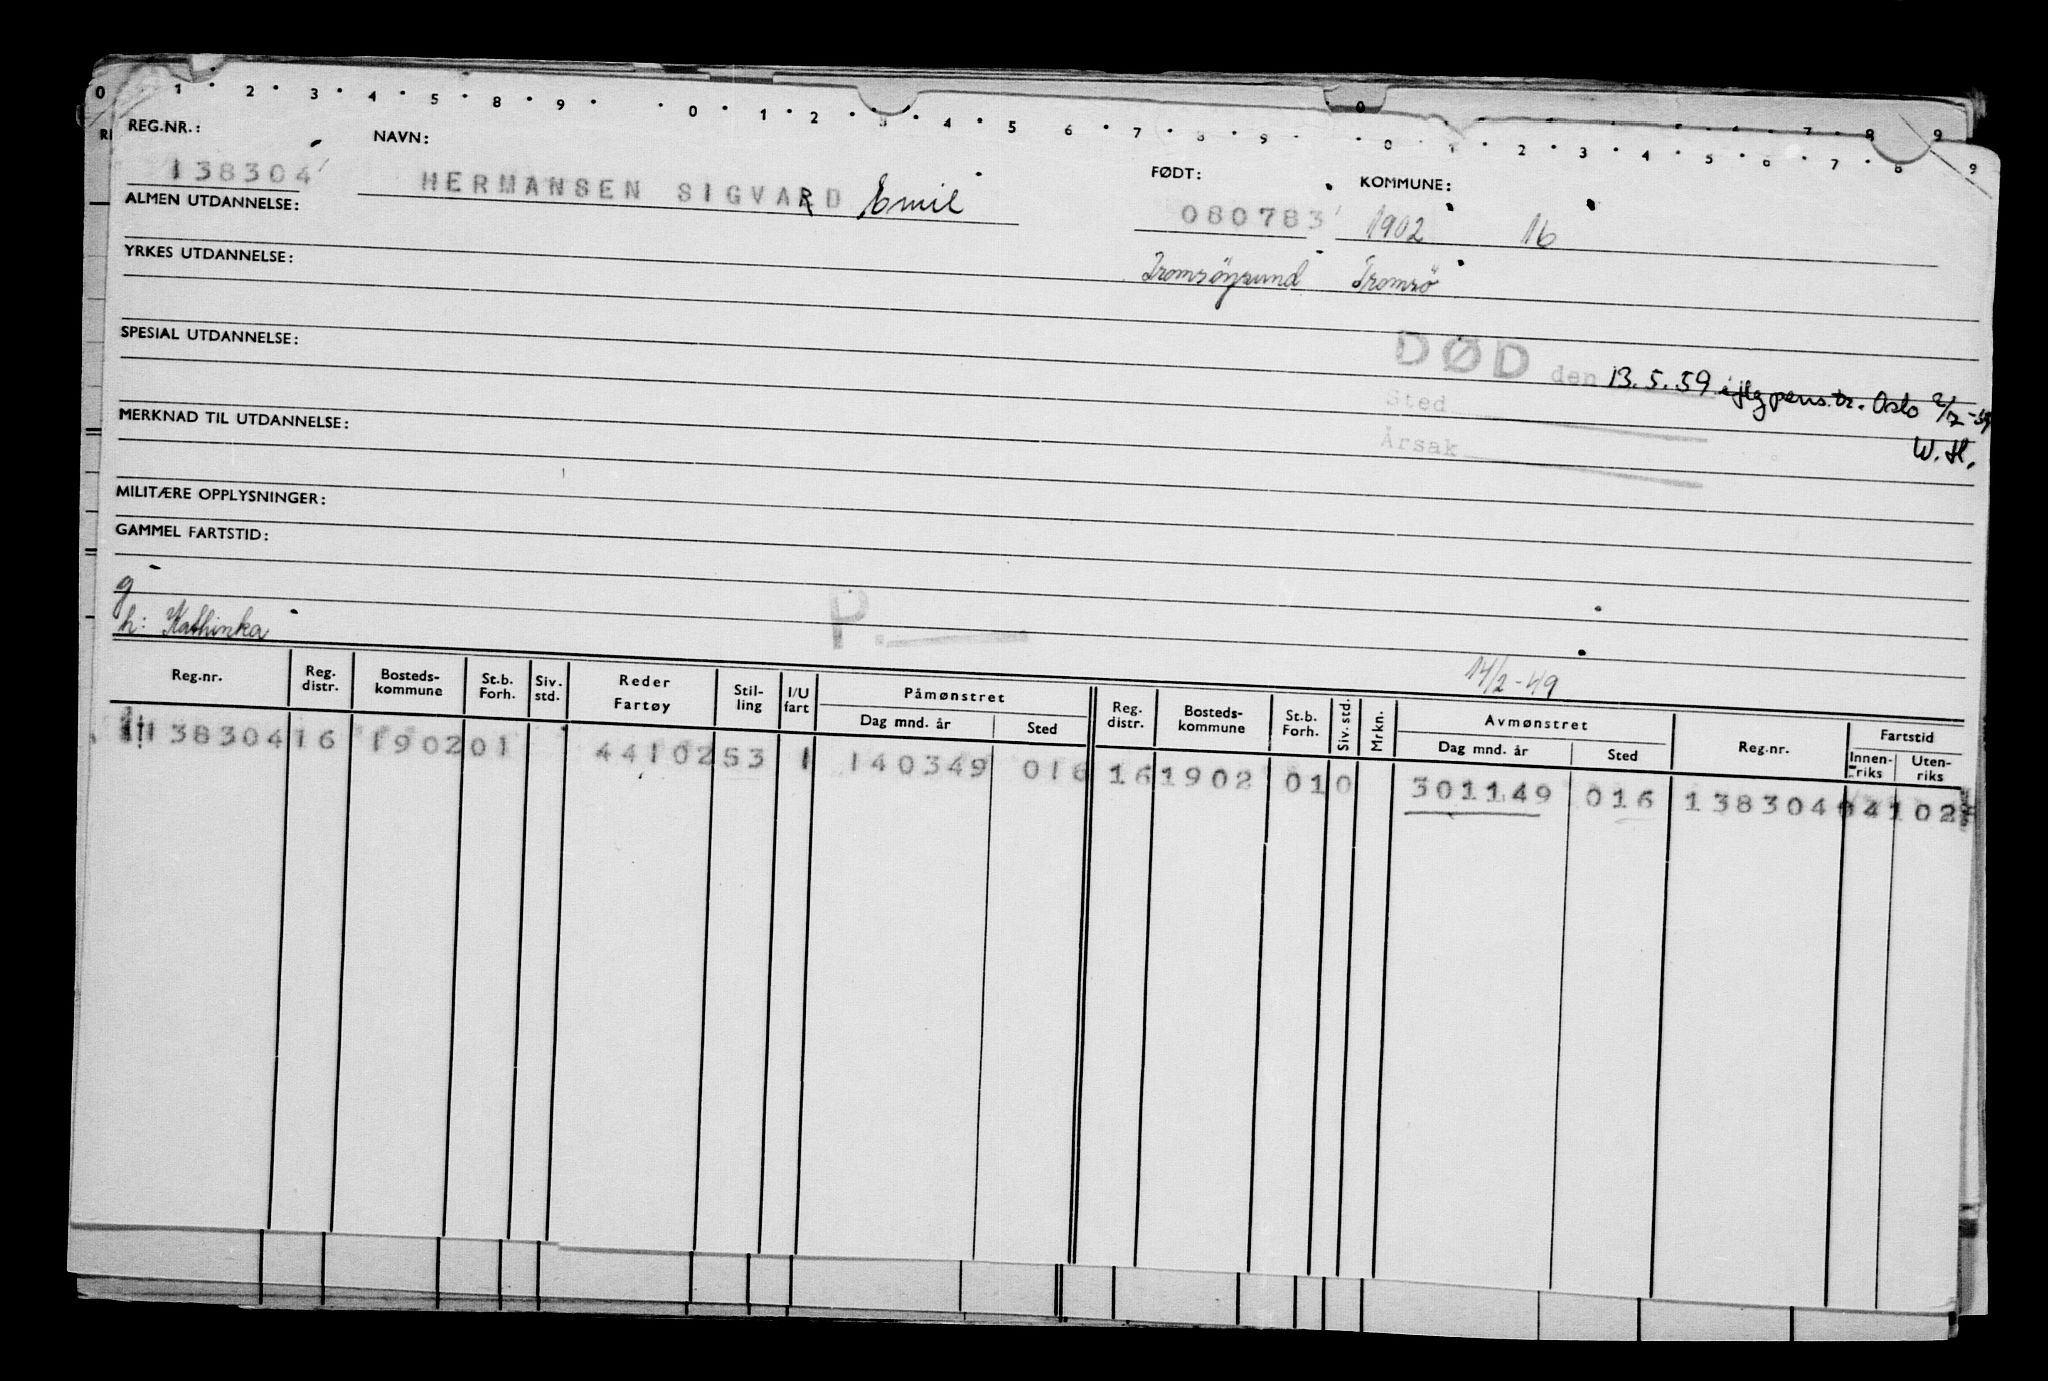 0 1 2 3 4 5 8 9 0 1 2 3 4 5 6 7 8 9 0 1 2 3 4 5 6 7 8 9
REG.NR.: NAVN: FØDT: KOMMUNE:
138304 HERMANSEN SIGVARD Emil 080783 1902 16
ALMEN UTDANNELSE:
YRKES UTDANNELSE: Tromsöysund Tromsö
SPESIAL UTDANNELSE:
DØD den 13.5.59 iflg pens.tr. Oslo 2/7-59
Sted
W.H.
MERKNAD TIL UTDANNELSE:
Årsak
MILITÆRE OPPLYSNINGER:
GAMMEL FARTSTID:
g
h: Kathinka P.
14/2-49
Reg.nr. Reg. distr. Bosteds- kommune St.b. Forh. Siv. std. Reder Fartøy Stil- ling I/U fart Påmønstret Dag mnd. år Sted Reg. distr. Bosteds- kommune St.b. Forh. Siv. std. Mrkn. Avmønstret Dag mnd. år Sted Reg.nr. Fartstid Innen- riks Uten- riks
138304 16 1902 01 44102 53 1 140349 016 16 1902 01 0 301149 016 138304 04102